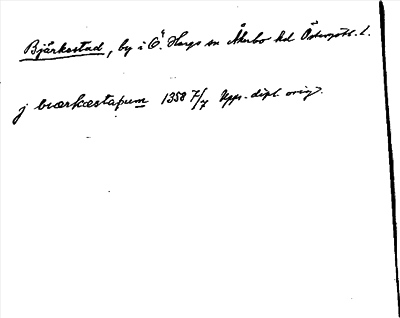 Bjärkestad, by i Ö. Hargs sn Åkerbo hd Östergötl. l.
j biærkæstaþum 1358 7/7 Upps. dipl. orig.